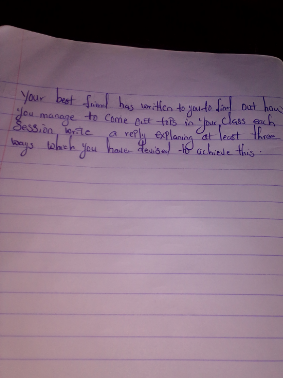 Your best friend has written to you to find out how
you manage to come out tops in your class each
Session write a reply explaining at least three
ways which you have devised to achieve this.